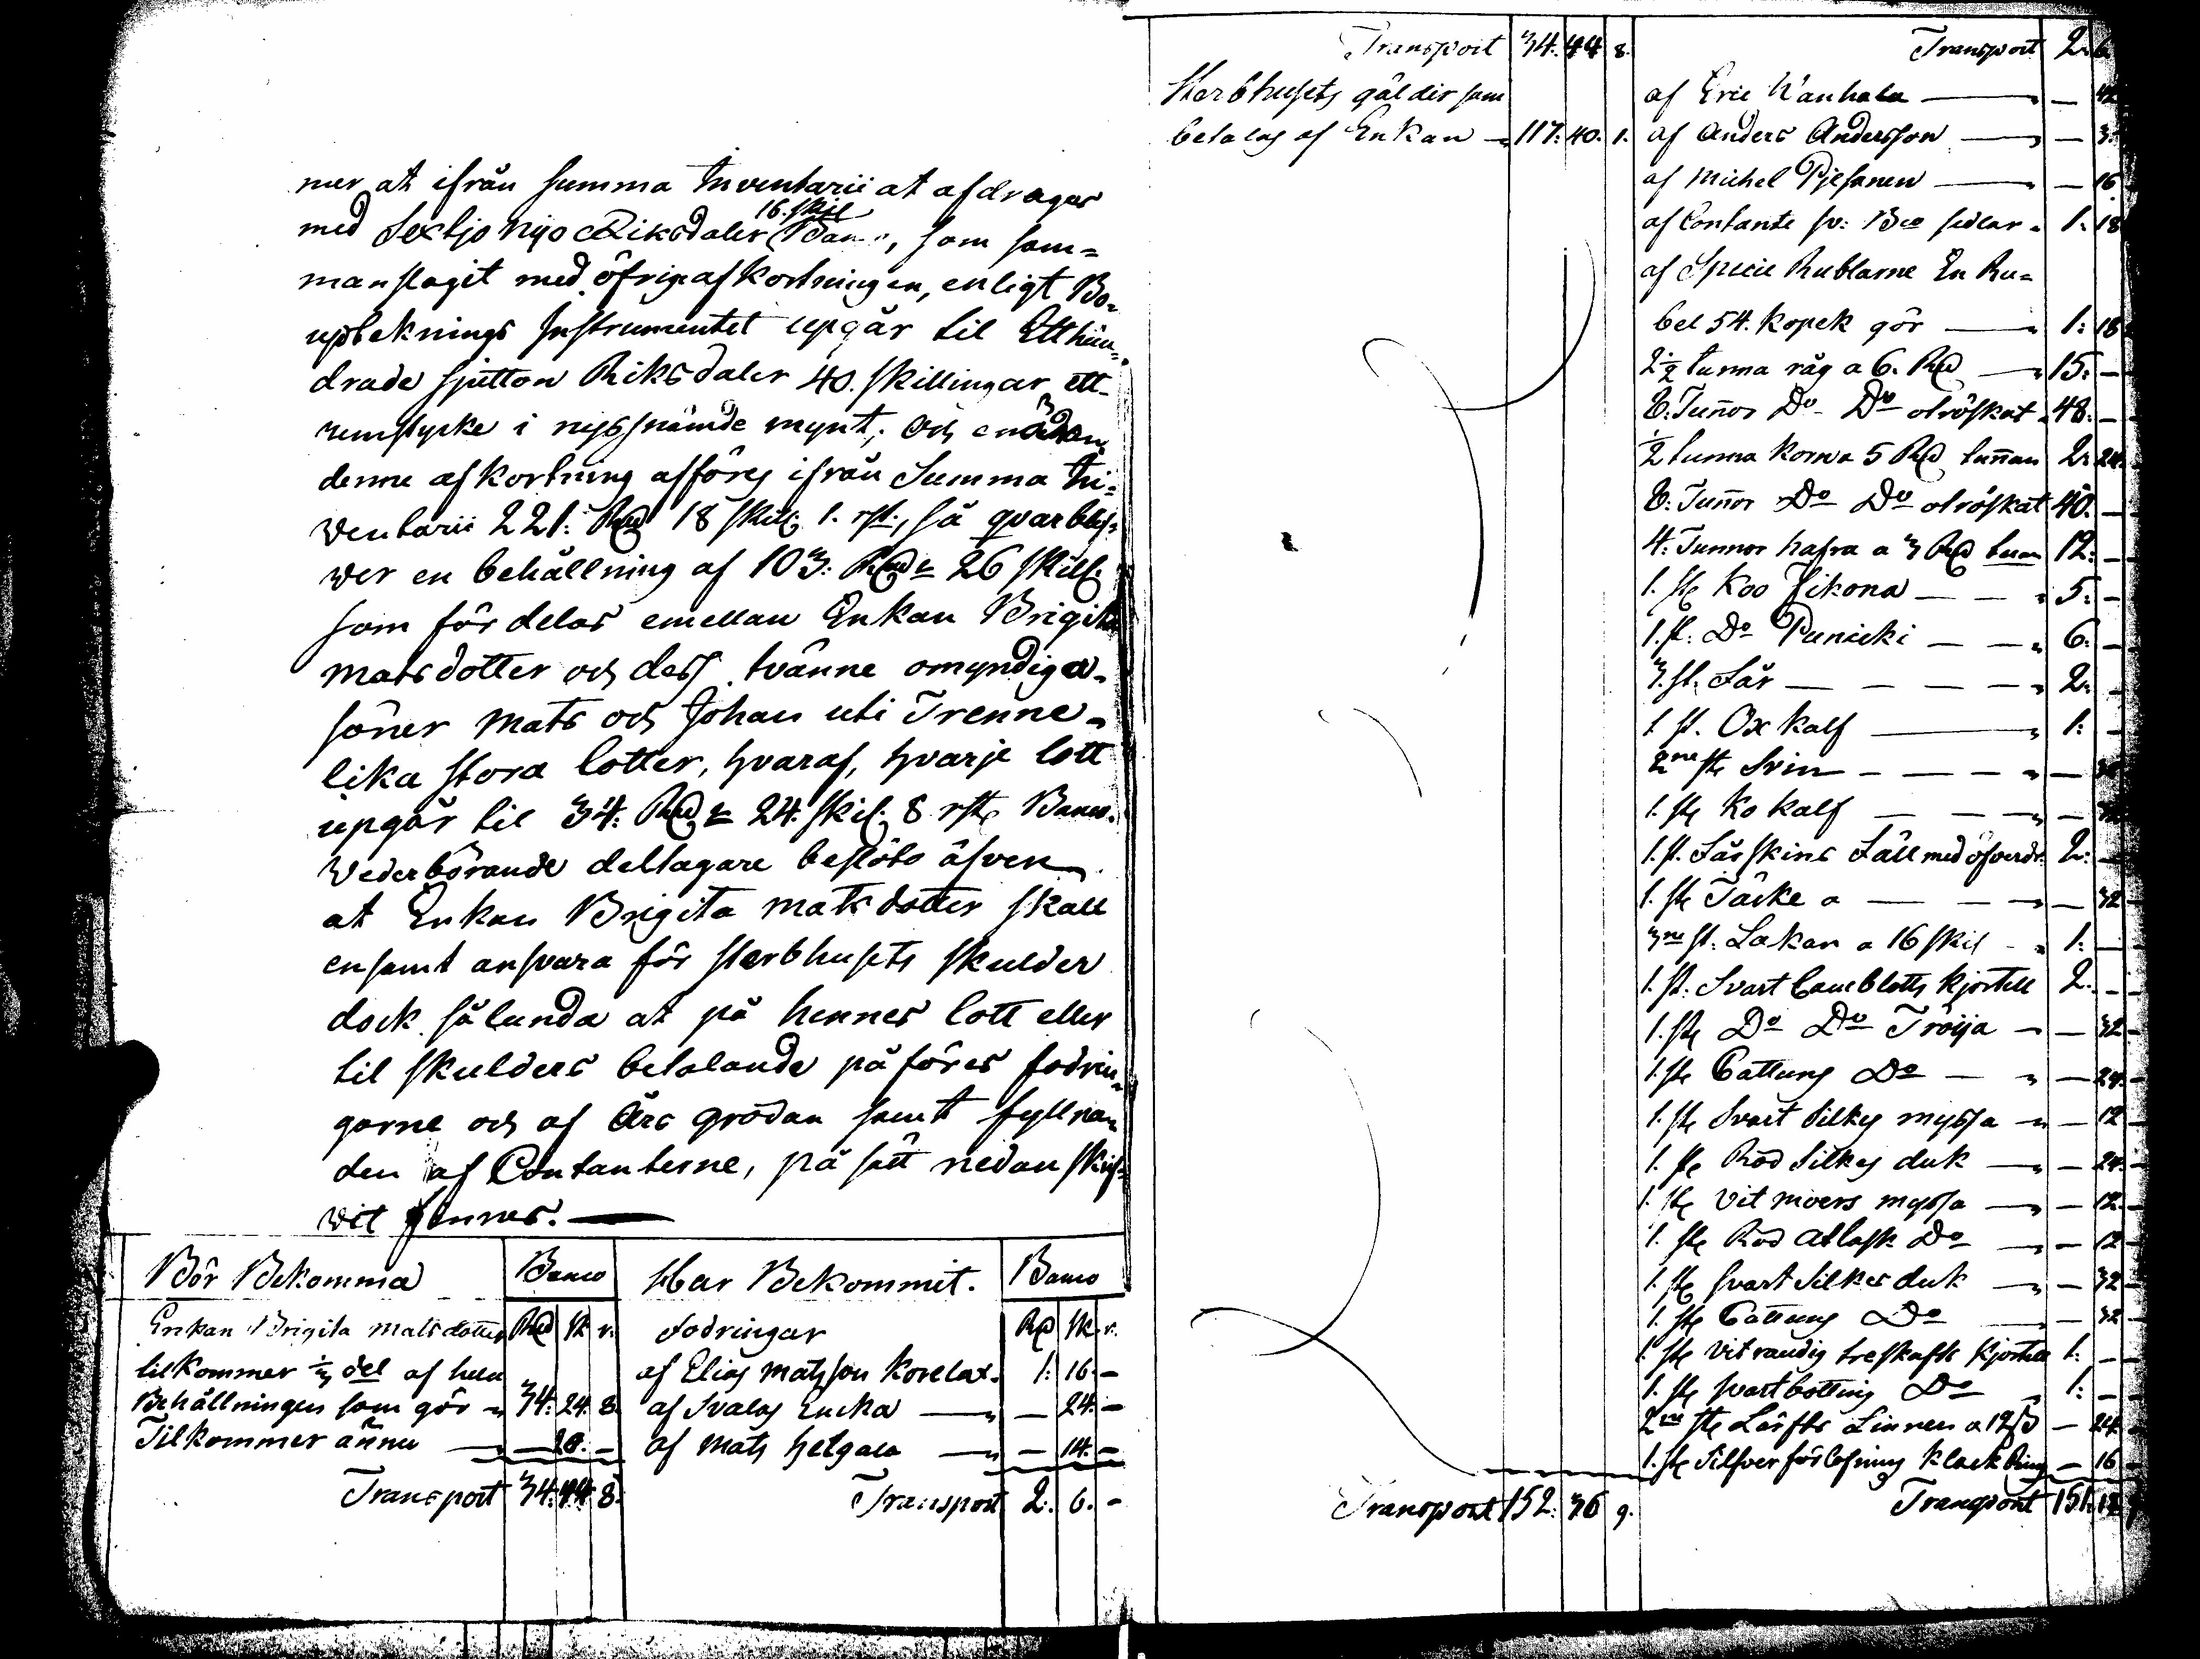 mer at ifrån Summa Inventarii at afdragas
16. skil
med Sextijo nijo Riksdaler Banco, som sam-
manslagit med öfrig afkortningen, enligt Bo-
uptecknings Instrumentet upgår til Etthun-
drade sjutton Riksdaler 40. skillingar ett-
runstycke i nyssnämde mynt; och
denne afkortning afföres ifrån Summa In-
ventarii 221: Rd 18 skil: 1. rst:, så qvarblif-
ver en behållning af 103: Rd 26 skill:
som fördelas emellan Enkan Brigita
matsdotter och dess tvänne omyndiga
söner Mats och Johan uti Trenne
lika stora lotter, hvaraf, hvarje lott
upgår til 34: Rd 24. skil: 8 rst Banco.
Vederbörande deltagare beslöto äfven
at Enkan Brigita matsdotter skall
ensamt ansvara för sterbhusets skulder
dock sålunda at på hennes lott eller
til skulders betalande påföres fodrin-
garne och af Års grödan samt fyllnan
den af Contanterne, på sätt nedanskrif-
vit finnes.
Bör Bekomma Banco Har Bekommit. Banco
Enkan Brigita matsdotter Rd sk r. Fodringar Rd sk r.
tilkommer 1/3 del af hela af Elias matsson Korelax. 1: 16. -
Behållningen som gör 34: 24. 8. af Svalas Encka - 24. -
Tilkommer ännu - 20. - af Mats helgala - 14. -
Transport 34: 44 8. Transport 2. 6. -
Transport 34. 44 8.
Sterbhusets gälder som
betalas af Enkan 117: 40. 1.
Transport 152: 36 9.
Transport 2. 6
af Eric Wanhala - 42
af Anders Andersson - 3.
af Michel Pjesanen - 16
af Contante sv: Bco sedlar 1: 18
af Specie Rublarne En Ru-
bel 54. kopek gör 1: 18
2 1/2 tunna råg a 6. Rd 15: -
8. Tunnor Do Do otröskat 48. -
1/2 tunna korn a 5 Rd tunnan 2: 24.
8. Tunnor Do Do otröskat 40. -
4. Tunnor hafra a 3 Rd tunn 12: -
1. st Koo Fikona 5. -
1. st: Do Punicki 6. -
3. st. Får 2. -
1 st. Ox kalf 1: -
2ne st Svin -
1. st Ko kalf -
1. st. Fårskins Fäll med öfverdr. 2: -
1. st Täcke a - 32 -
3ne st. Lakan a 16 skil 1: -
1. st. Svart Camblotts kjortell 2. -
1. st Do Do Tröija - 32 -
1. st Cattuns Do - 24. -
1. st Svart Silkes myssa - 12 -
1. st Röd Silkes duk - 24. -
1. st vit moers myssa - 12. -
1. st Röd atlask Do - 12 -
1. st svart Silkes duk - 32 -
1. st Cattuns Do - 32 -
1. st vit randig treskafts kjortell 1: -
1. st svart Do 1: -
2ne st Lärfts Linnen a 12 - 24 -
1. st Silfver förlofnings Klack Ring - 16 -
Transport 151. 12